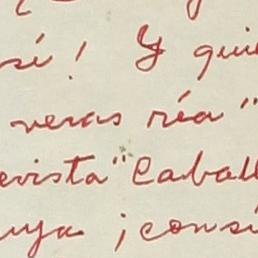 sí! Y quie
veras ría "
evista "Caball
uya ¡consí